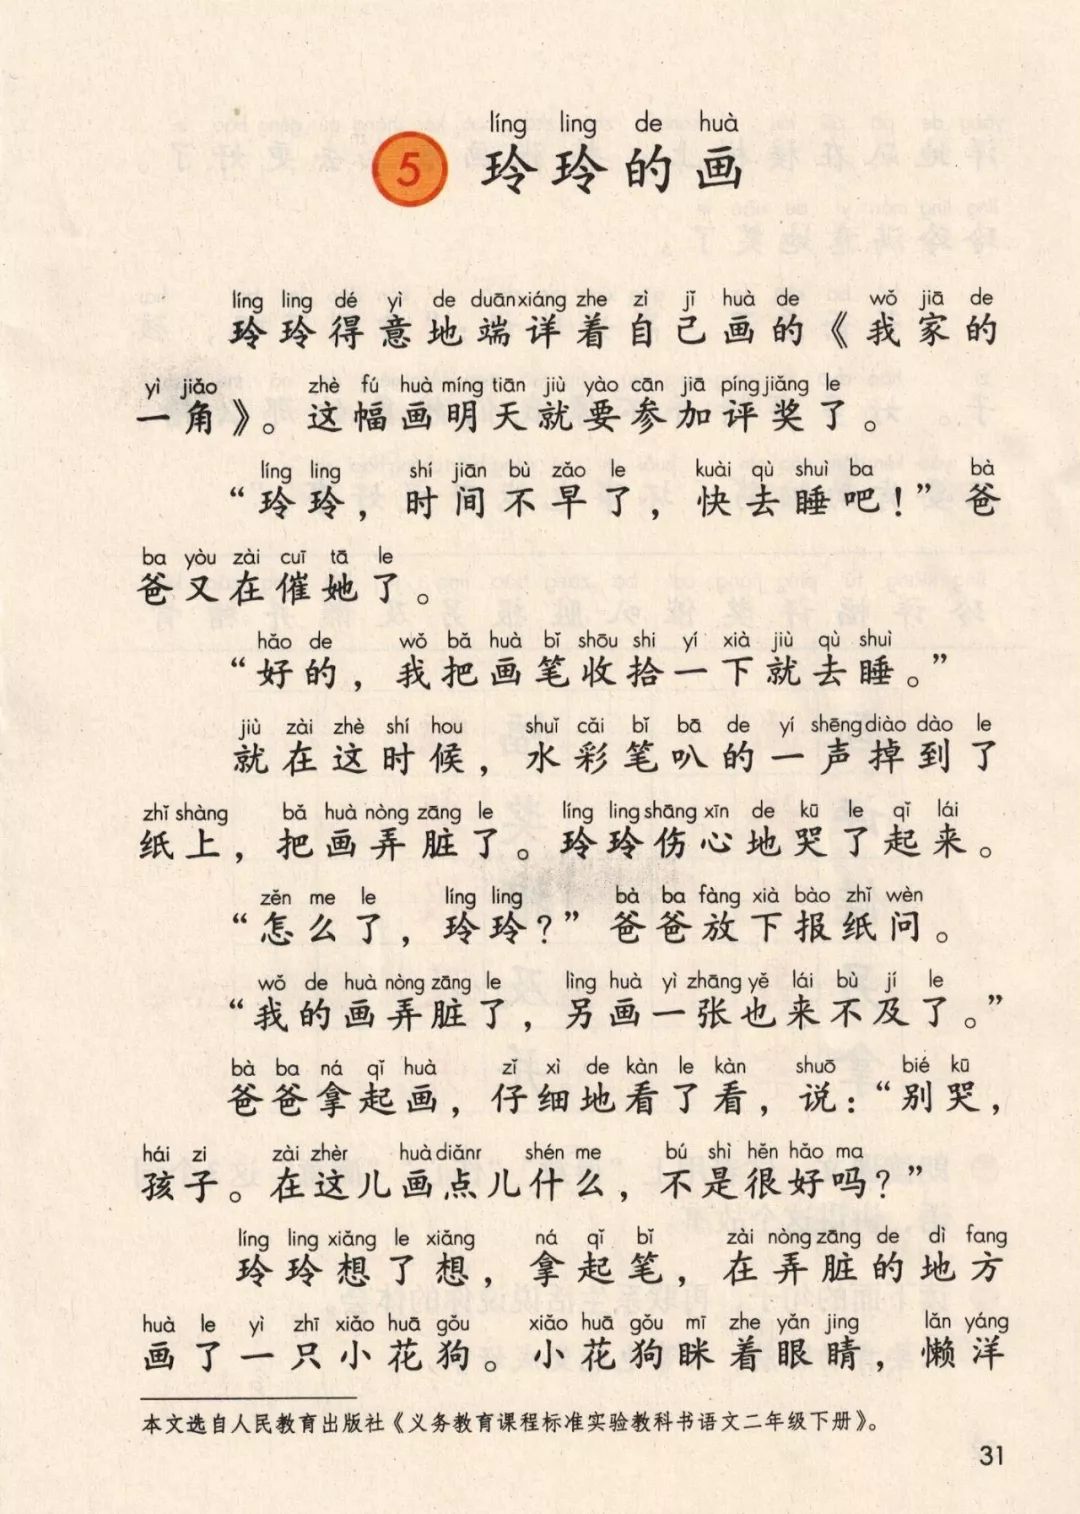 líng ling de huà
5 玲玲的画
líng ling dé yì de duānxiáng zhe zì jǐ huà de wǒ jiā de
玲玲得意地端详着自己画的《我家的
yì jiǎo zhè fú huà míng tiān jiù yào cān jiā píng jiǎng le
一角》。这幅画明天就要参加评奖了。
líng ling shí jiān bù zǎo le kuài qù shuì ba bà
“玲玲，时间不早了，快去睡吧！”爸
ba yòu zài cuī tā le
爸又在催她了。
hǎo de wǒ bǎ huà bǐ shōu shi yí xià jiù qù shuì
“好的，我把画笔收拾一下就去睡。”
jiù zài zhè shí hou shuǐ cǎi bǐ bā de yí shēng diào dào le
就在这时候，水彩笔叭的一声掉到了
zhǐ shàng bǎ huà nòng zāng le líng ling shāng xīn de kū le qǐ lái
纸上，把画弄脏了。玲玲伤心地哭了起来。
zěn me le líng ling bà ba fàng xià bào zhǐ wèn
“怎么了，玲玲？”爸爸放下报纸问。
wǒ de huà nòng zāng le lìng huà yì zhāng yě lái bù jí le
“我的画弄脏了，另画一张也来不及了。”
bà ba ná qǐ huà zǐ xì de kàn le kàn shuō bié kū
爸爸拿起画，仔细地看了看，说：“别哭，
hái zi zài zhèr huà diǎnr shén me bú shì hěn hǎo ma
孩子。在这儿画点儿什么，不是很好吗？”
líng ling xiǎng le xiǎng ná qǐ bǐ zài nòng zāng de dì fang
玲玲想了想，拿起笔，在弄脏的地方
huà le yì zhī xiǎo huā gǒu xiǎo huā gǒu mī zhe yǎn jing lǎn yáng
画了一只小花狗。小花狗眯着眼睛，懒洋
本文选自人民教育出版社《义务教育课程标准实验教科书语文二年级下册》。
31